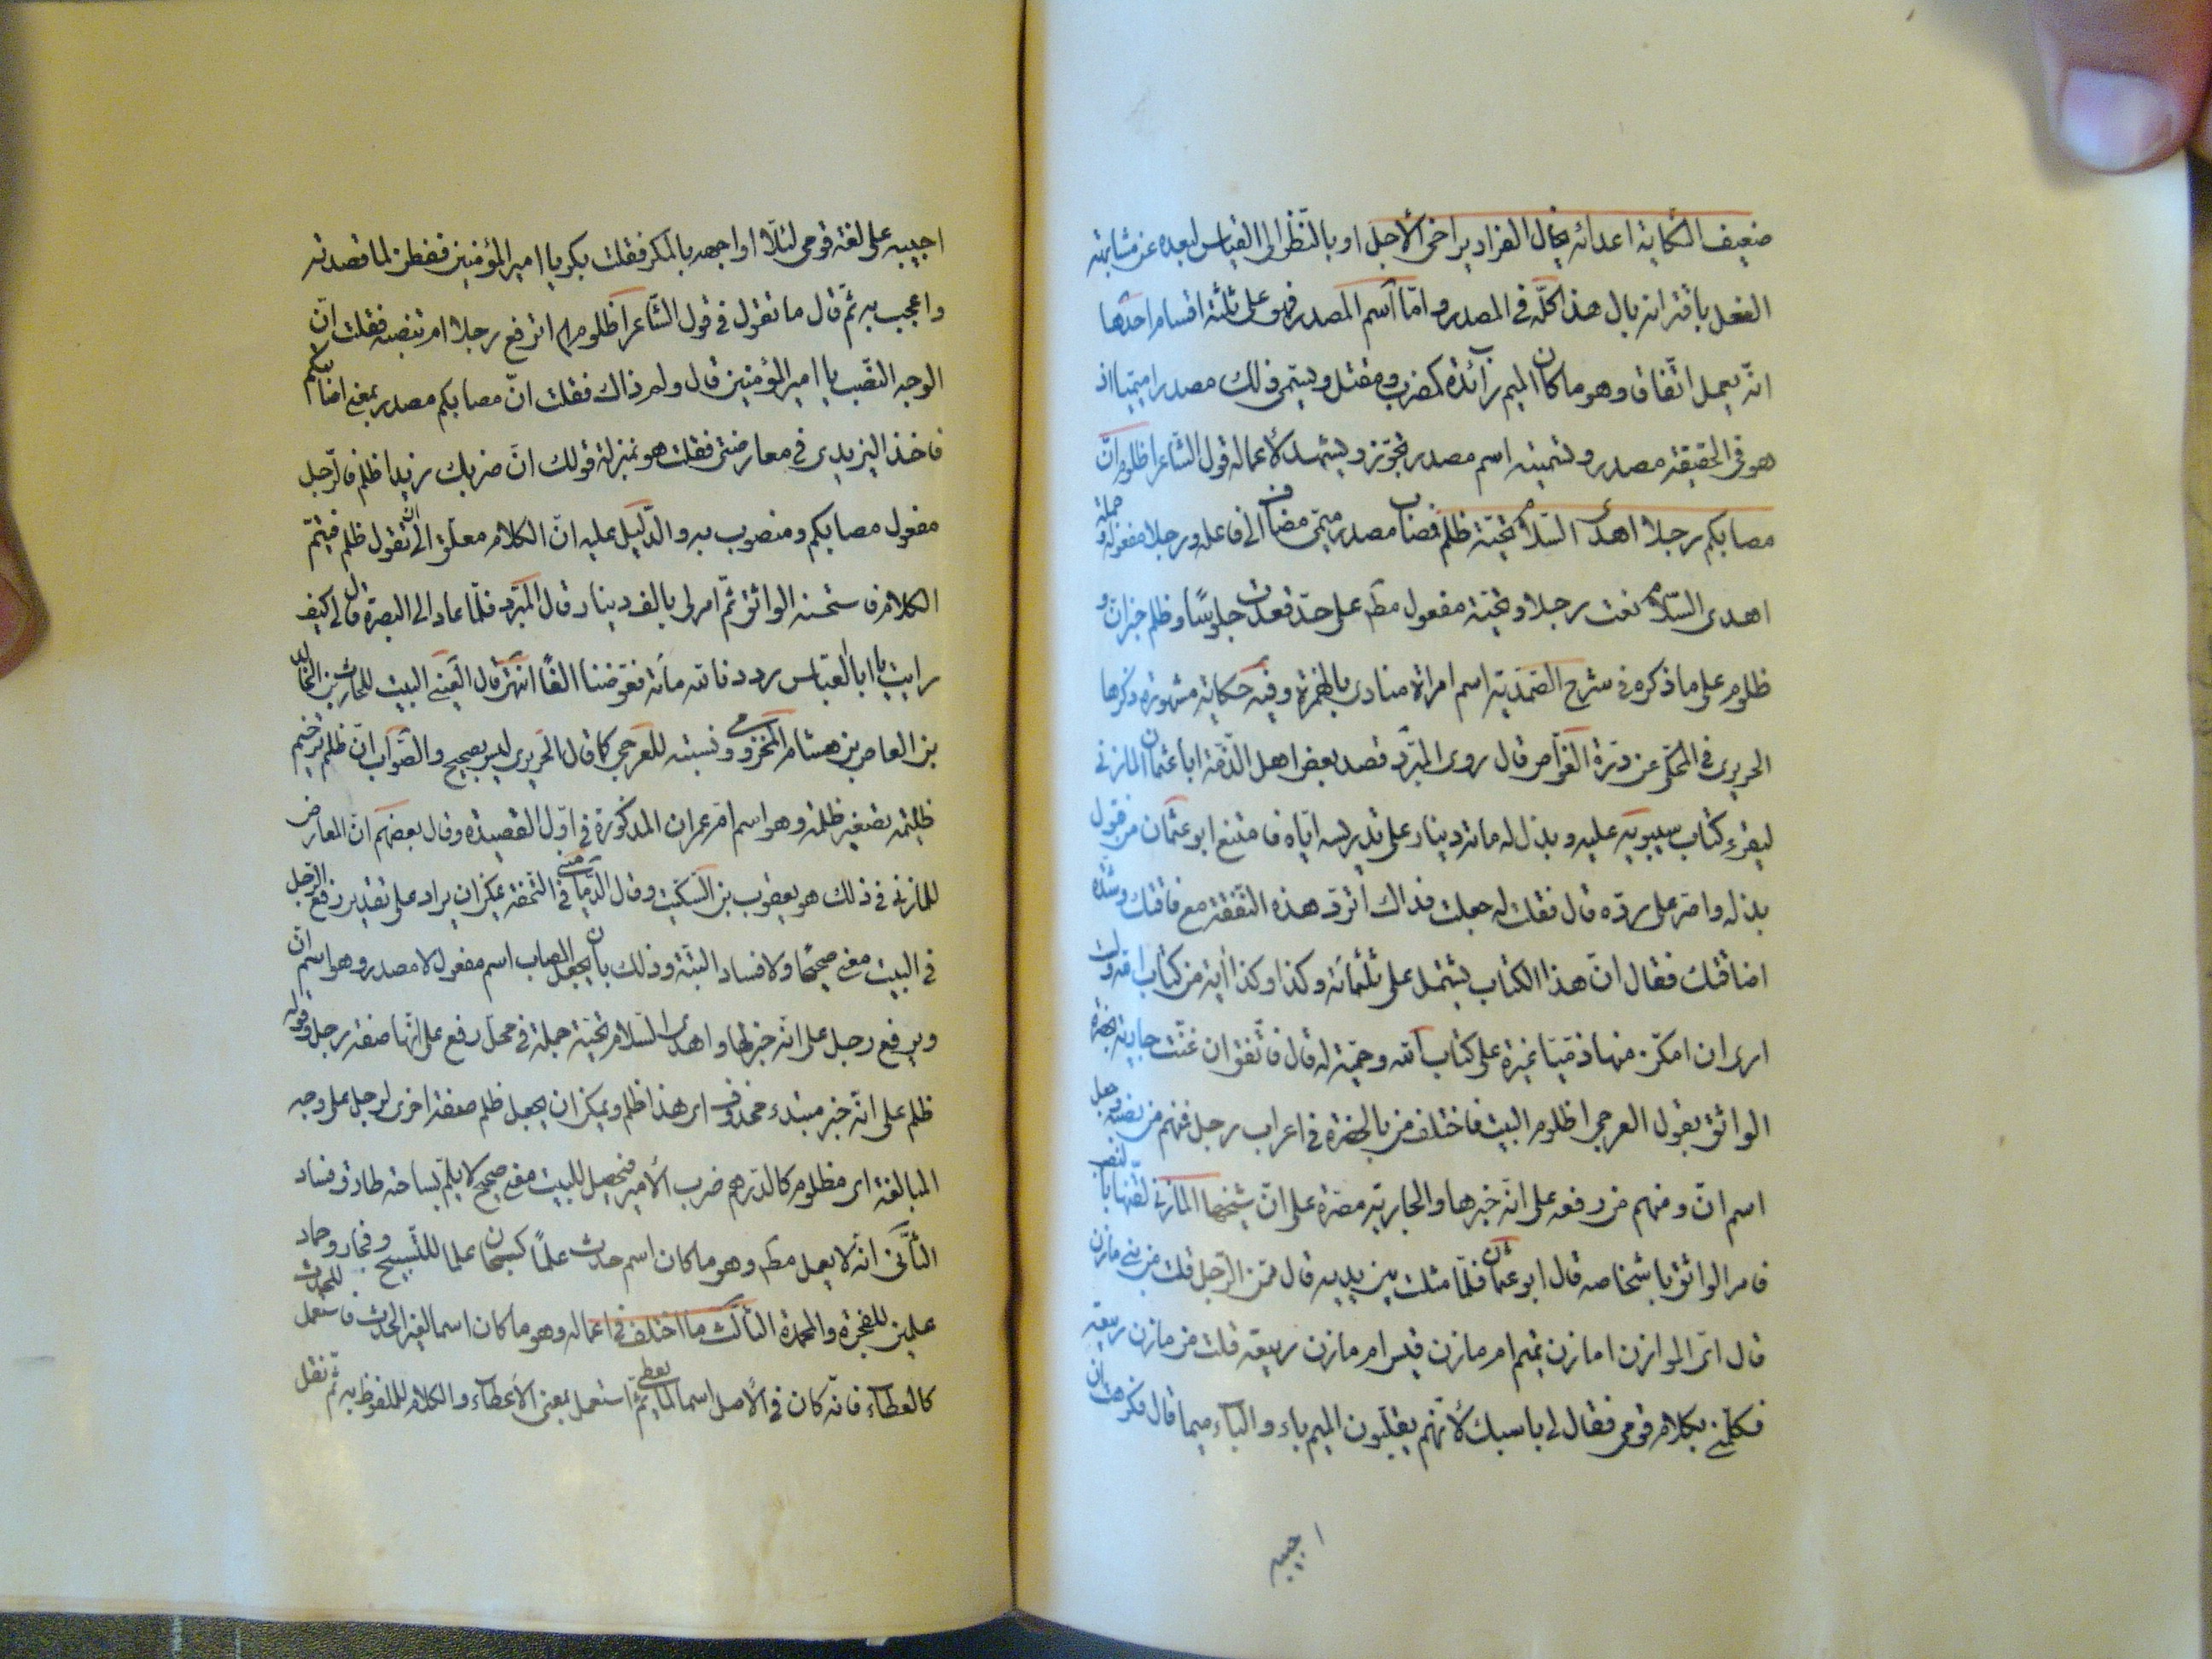 ضعيف النكاية اعدائه يخال الفرار يراخى الأجل او بالنظر الى القياس لبعده عن مشابهة
الفعل باقترانه بال هذا كلّه فى المصدر وامّا اسم المصدر فهو على ثلثة اقسام احدها
انّه يعمل اتفاقا وهو ما كان الميم زائدة كمضرب ومقتل ويسمّى ذلك مصدرا ميميا اذ
هو فى الحقيقة مصدر وتسميته اسم مصدر تجوّز ويشهد لأعماله قول الشاعر اظلوم انّ
مصابكم رجلا اهدى السّلام تحيّة ظلم فمصاب مصدر ميمى مضاف الى فاعله ورجلا مفعوله وجملة
اهدى السّلام نعت رجلا وتحيّة مفعول مطـ على حدّ قعدت جلوسًا وظلم خبر انّ و
ظلوم على ما ذكره فى شرح الصمدية اسم امراة منادى بالهمزة وفيه حكاية مشهورة ذكرها
الحريرى فى المحكى عن درّة الغوّاص قال روى المبرّد قصد بعض اهل الذّمّة ابا عثمان المازنى
ليقرء كتاب سيبويه عليه وبذل له مائة دينار على تدريسه ايّاه فامتنع ابو عثمان من قبول
بذله واصرّ على ردّه قال فقلت له جعلت فداك اتردّ هذه النّفقة مع فاقتك وشدّة
اضاقتك فقال انّ هذا الكتاب يشتمل على ثلثمائة وكذا وكذا آية من كتاب الله ولست
ارى ان امكّن منها ذمّيّا غيرة على كتاب الله وحميّة له قال فاتّفق ان غنّت جارية بحضرة
الواثق بقول العرجى اظلوم البيت فاختلف من بالحضرة فى اعراب رجل فمنهم من نصبه وجعل
اسم انّ ومنهم من رفعه على انّه خبرها والجارية مصرّة على انّ شيخها المازنى لقّنها بالنصب
فامر الواثق باشخاصه قال ابو عثمان فلمّا مثلت بين يديه قال ممّن الرّجل قلت من بنى مازن
قال اىّ الموازن امازن تميم ام مازن قيس ام مازن ربيعة قلت من مازن ربيعة
فكلّمنى بكلام قومى فقال لى باسبك لأنّهم يقلبون الميم باء والباء ميما قال فكرهت ان
اجيبه
اجيبه على لغة قومى لئلّا اواجهه بالمكر فقلت بكر يا امير المؤمنين ففطن لما قصدته
واعجب به ثمّ قال ما تقول فى قول الشّاعر اظلوم اترفع رجلا ام تنصبه فقلت انّ
الوجه النّصب يا امير المؤمنين قال ولم ذاك فقلت انّ مصابكم مصدر بمعنى اصابتكم
فاخذ اليزيدى فى معارضتى فقلت هو بمنزلة قولك انّ ضربك زيدا ظلم فالرّجل
مفعول مصابكم ومنصوب به والدّليل عليه انّ الكلام معلّق الى ان تقول ظلم فيتمّ
الكلام فاستحسنه الواثق ثمّ امر لى بالف دينار قال المبرّد فلمّا عاد الى البصرة قال لى كيف
رايت يا ابا العبّاس رددنا لله مائة فعوّضنا الفًا انتهى قال العينى البيت للحارث بن الخالد
بن العاص بن هشام المخزومى ونسبته للعرجى كما قال الحريرى ليس بصحيح والصّواب انّ ظلم ترخيم
ظليمه تصغير ظلمة وهو اسم امّ عمران المذكورة فى اوّل القصيدة وقال بعضهم انّ المعارض
للمازنى فى ذلك هو يعقوب بن السّكّيت وقال الدّمامينى فى التحفة يمكن ان يراد على تقدير رفع الرّجل
فى البيت معنى صحيحًا ولا فساد البتّة وذلك بان يجعل المصاب اسم مفعول لا مصدر وهو اسم انّ
ويرفع رجل على انّه خبر لها واهدى السّلام تحيّة جملة فى محلّ رفع على انّها صفة رجل وقوله
ظلم على انّه خبر مبتدء محذوف اى هذا ظلم ويمكن ان يجعل ظلم صفة اخرى لرجل على وجه
المبالغة اى مظلوم كالدّرهم ضرب الأمير فيحصل للبيت معنى صحيح لا يلمّ بساحته طارق فساد
الثّانى انّه لا يعمل مطـ وهو ما كان اسم حدث علمًا كسبحان علما للتّسبيح وفجار وحماد
علمين للفجرة والمحمدة الثّالث ما اختلف فى اعماله وهو ما كان اسما لغير الحدث فاستعمل للحدث
كالعطاء فانّه كان فى الأصل اسما لما يعطى ثمّ استعمل بمعنى الاعطاء والكلام للملفوظ به ثمّ نقل